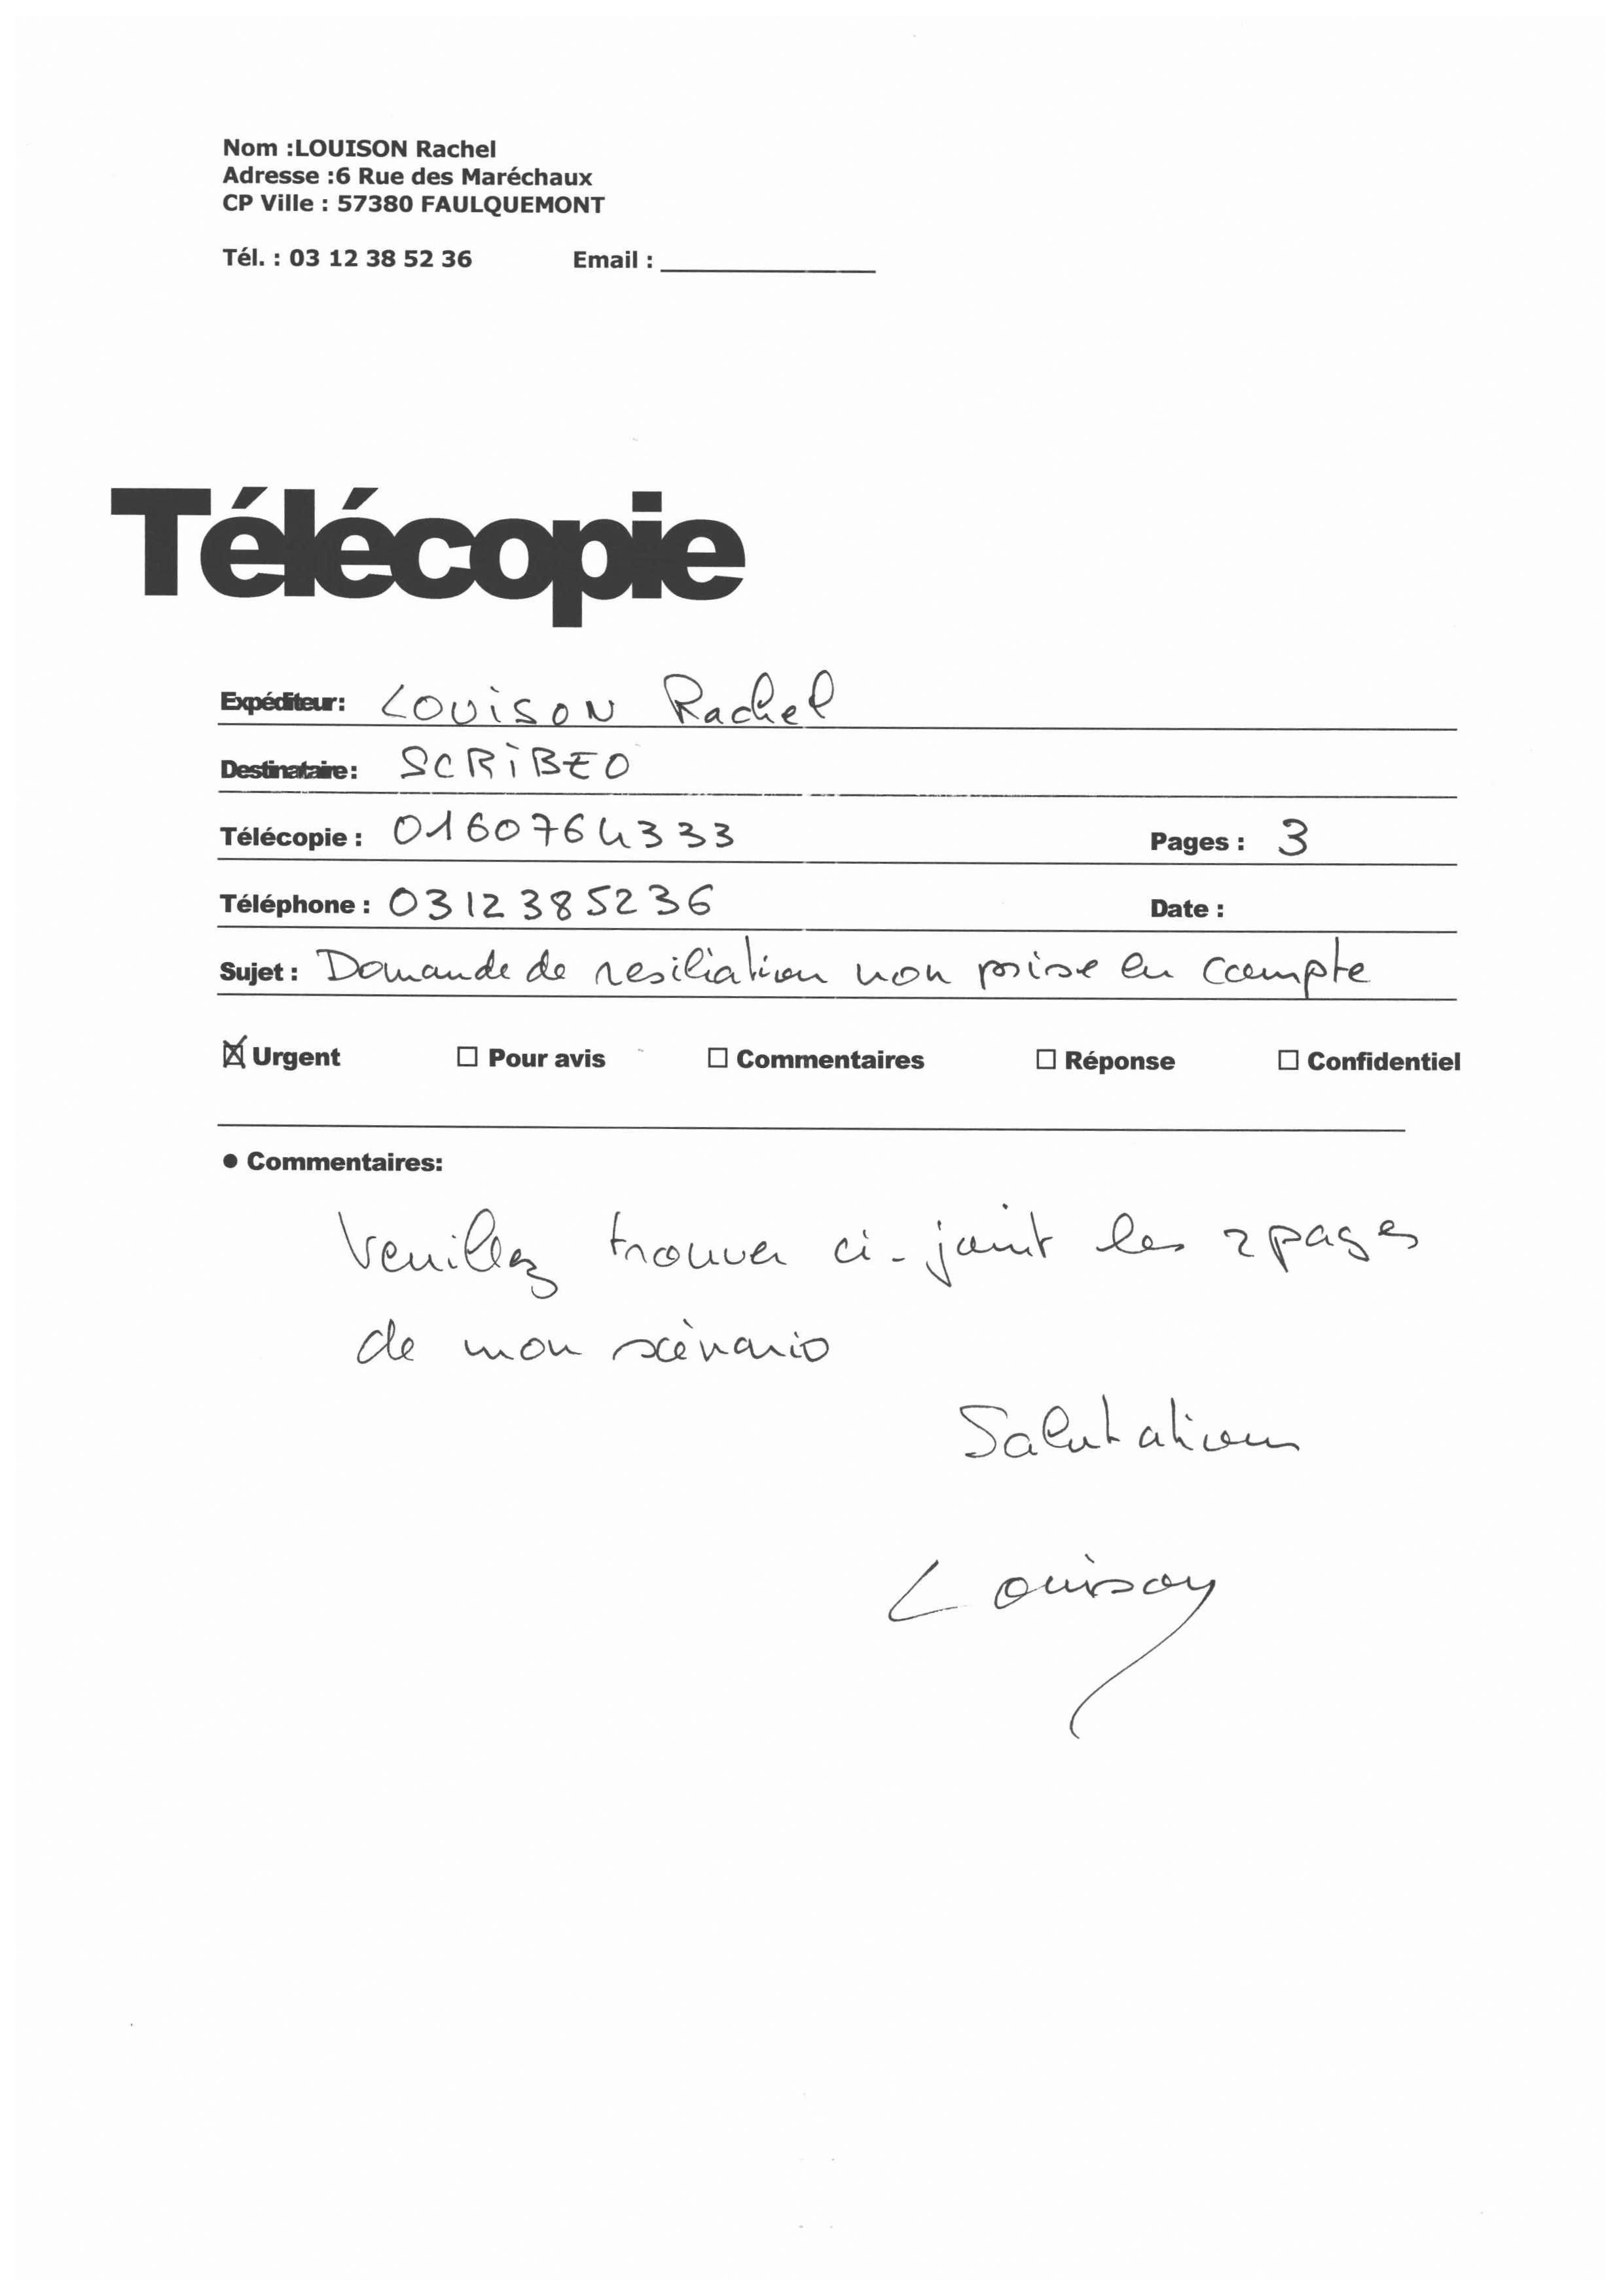 Nom :LOUISON Rachel
Adresse :6 Rue des Maréchaux
CP Ville : 57380 FAULQUEMONT
Tél. : 03 12 38 52 36 Email :
Télécopie
Expéditeur: LOUISON Rachel
Destinataire: SCRIBEO
Télécopie : 0160764333 Pages : 3
Téléphone : 0312385236 Date :
Sujet : Demande de resiliation non prise en compte
☒ Urgent ☐ Pour avis ☐ Commentaires ☐ Réponse ☐ Confidentiel
● Commentaires:
Veuillez trouver ci-joint les 2 pages
de mon scénario
Salutations
Louison